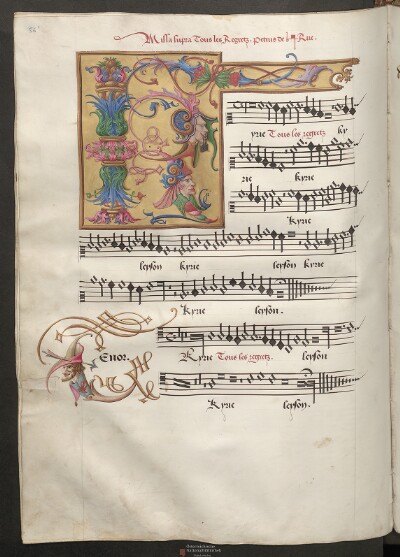 Missa supra Tous les Regretz. Petrus de la Rue.
K
yrie Tous les regretz ky
rie kyrie
Kyrie
leyson kyrie leyson kyrie
Kyrie leyson.
Tenor. Kyrie Tous les regretz. leyson
Kyrie leyson.